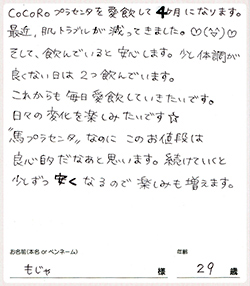 CoCoRoプラセンタを愛飲して4ヶ月になります。
最近、肌トラブルが減ってきました。♡(ˇωˇ)♡
そして、飲んでいると安心します。少し体調が
良くない日は2つ飲んでいます。
これからも毎日愛飲していきたいです。
日々の変化を楽しみたいです☆
"馬プラセンタ"なのにこのお値段は
良心的だなあと思います。続けていくと
少しずつ安くなるので楽しみも増えます。
お名前(本名 or ペンネーム) 年齢
もじゃ 様 29 歳